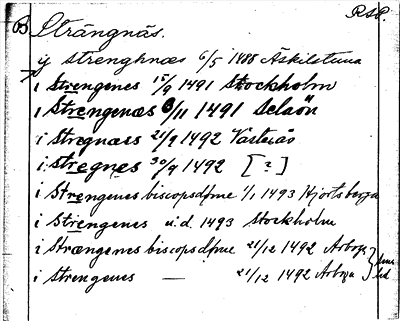 RSP.
B Strängnäs.
ij strenghnæs 6/5 1488 Äskilstuna
i Strengenes 15/9 1491 Stockholm
i Strengenæs 8/11 1491 Selaön
i Stregnæss 21/9 1492 Västerås
i stregnes 30/9 1492 [?]
i Strengenes biscopsdøme 1/1 1493 Hjortsberga
i Strengenes u.d. 1493 Stockholm
i Strængenes biscopsdøme 21/12 1492 Arboga
i Strengenes — 21/12 1492 Arboga